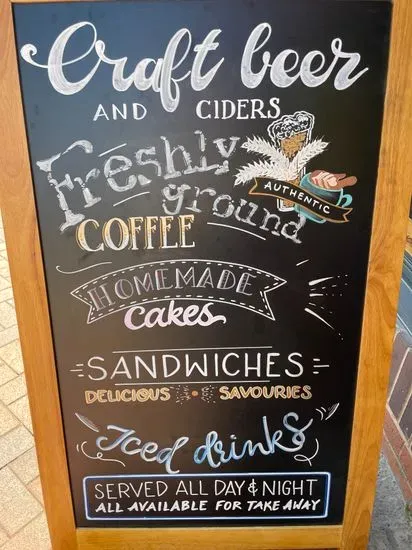 Craft beer
AND CIDERS
Freshly
ground
AUTHENTIC
COFFEE
HOMEMADE
cakes
SANDWICHES
DELICIOUS SAVOURIES
Iced drinks
SERVED ALL DAY & NIGHT
ALL AVAILABLE FOR TAKE AWAY